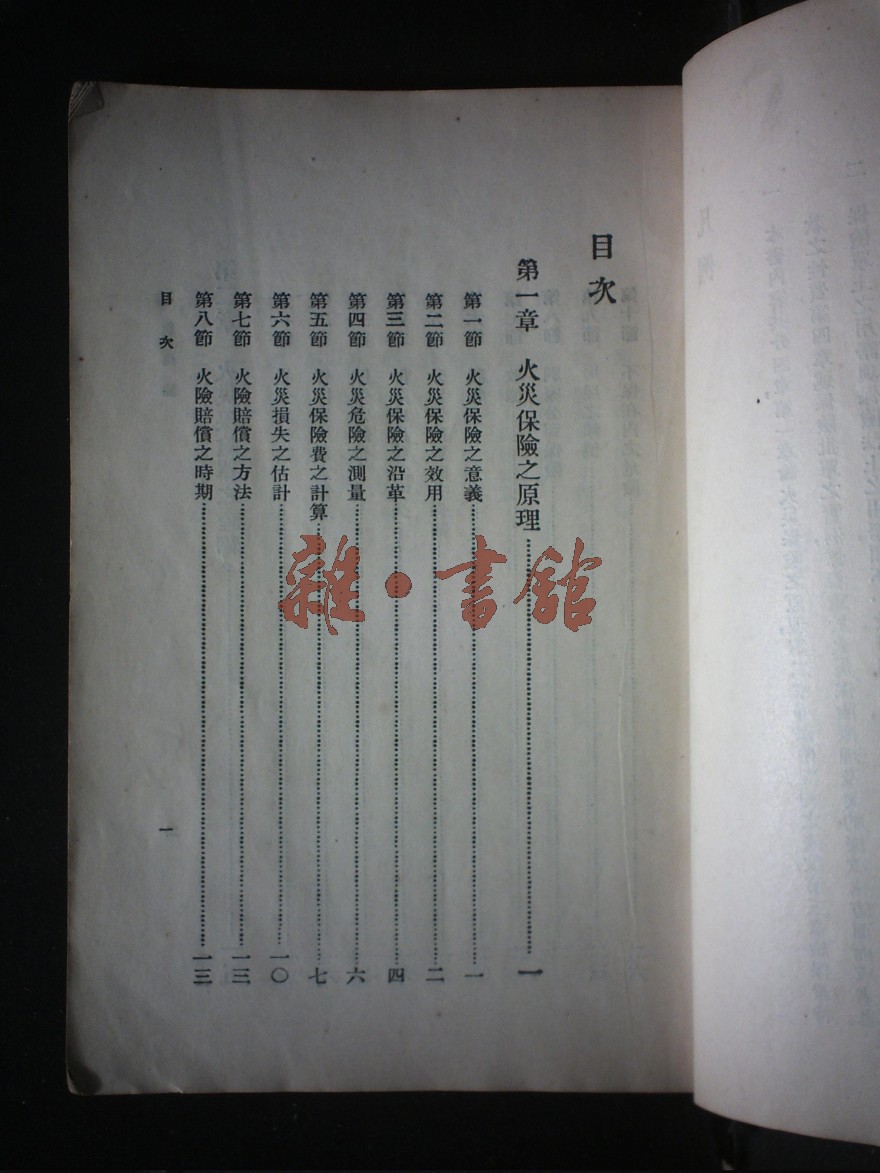 目次
第一章 火災保險之原理……一
第一節 火災保險之意義……一
第二節 火災保險之效用……二
第三節 火災保險之沿革……四
第四節 火災危險之測量……六
第五節 火災保險費之計算……七
第六節 火災損失之估計……一〇
第七節 火險賠償之方法……一三
第八節 火險賠償之時期……一三
目次
一
雜·書館
凡例